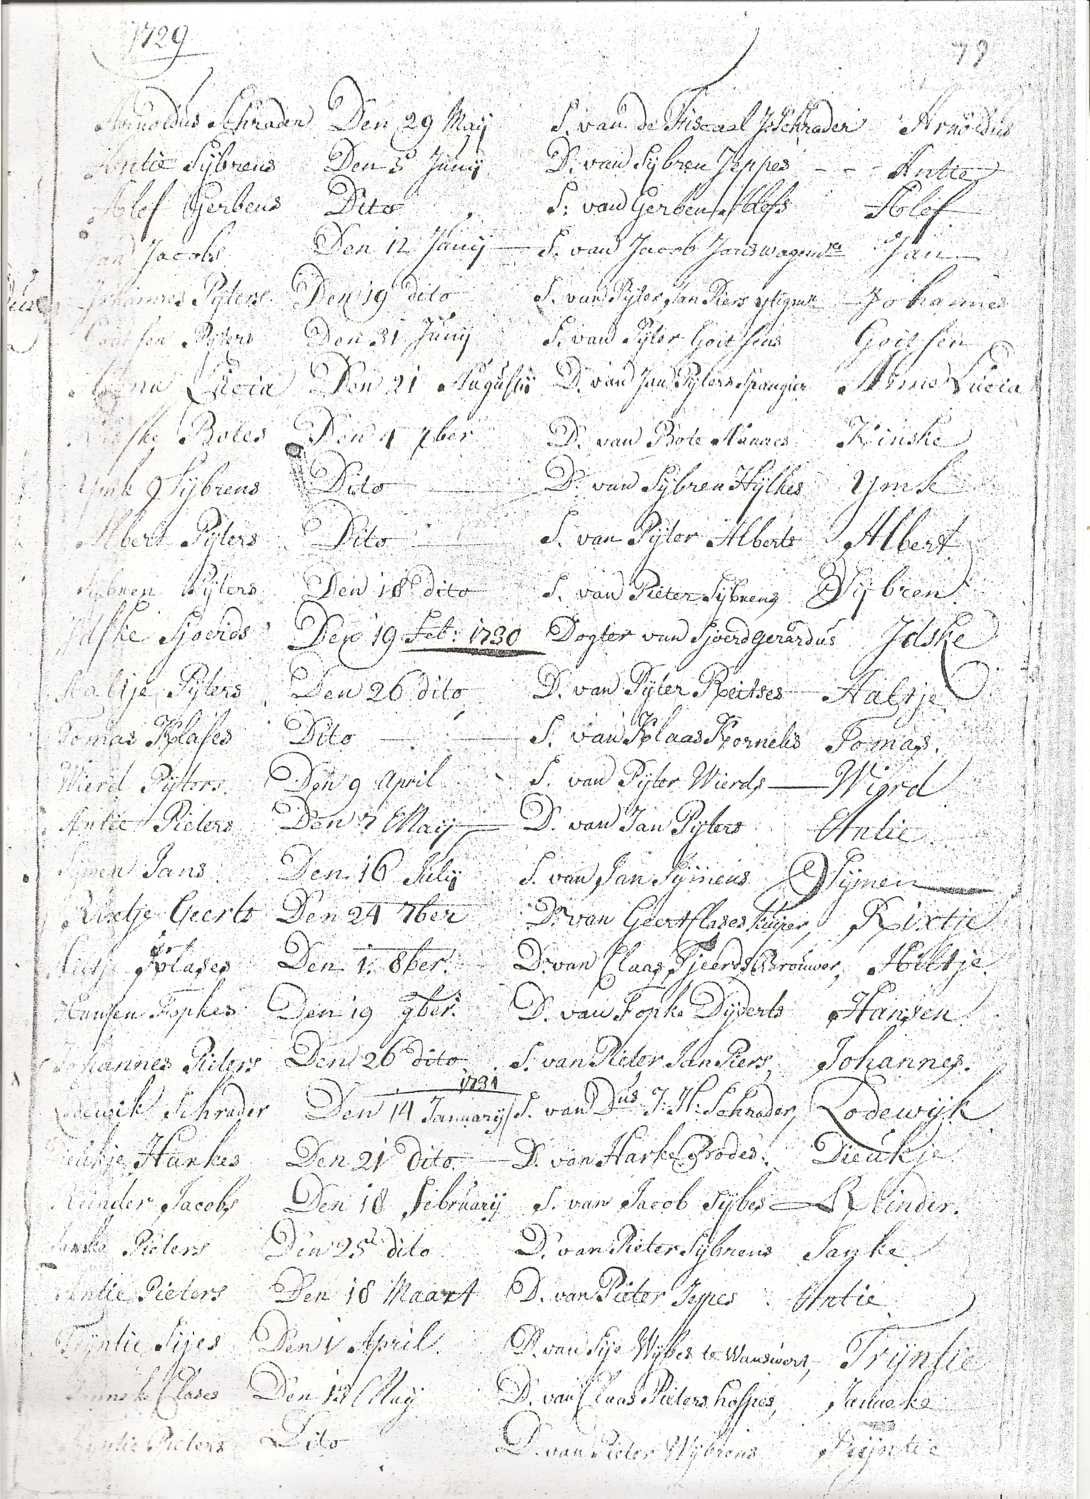 1729
79
Arnoldus Schrader Den 29 May S. van de Fiscaal J. Schrader Arnoldus
Antie Sybrens Den 5 Junij D. van Sybren Jeppes - - Antie
Alof Gerbens Dito S: van Gerben Alofs Alof
Jan Jacobs Den 12 Junij S. van Jacob Jans Jan
Johannes Pijters Den 19 dito S. van Pijter Jan Piers Johannes
Goitsen Pijters Den 31 Junij S. van Pijter Goitsens Goitsen
Anna Lucia Den 21 Augustij D. van Jan Pijters Anna Lucia
Kinske Botes Den 4 7ber D. van Bote Kinske
Ymk Sijbrens Dito D. van Sijbren Hylkes Ymk
Albert Pijters Dito S. van Pijter Alberts Albert
Sijbren Pijters Den 18 dito S. van Pieter Sijbrens Sijbren
Idske Sjoerds Den 19 Feb: 1730 Dogter van Sjoerd Gerardus Idske
Aaltje Pijters Den 26 dito D. van Pijter Reitses Aaltje
Tomas Klases Dito S. van Klaas Kornelis Tomas.
Wierd Pijters Den 9 April S. van Pijter Wierds Wierd
Antie Pieters Den 7 May D. van Jan Pijters Antie
Sijmen Jans Den 16 Julij S. van Jan Sijmens Sijmen
Rixtje Geerts Den 24 7ber D. van Geert Clases Kuiper, Rixtje
Hiltje Klases Den 1. 8ber. D. van Claas Tjeerds Brouwer, Hiltje.
Hansen Fopkes Den 19 9ber. D. van Fopke Hansen
Johannes Pieters Den 26 dito S. van Pieter Jan Piers, Johannes.
1731
Lodewijk Schrader Den 14 Januarij S. van Dus J. H. Schrader, Lodewijk
Dieukje Harkes Den 21 dito D. van Harke Brodes. Dieukje
Reinder Jacobs Den 18 februarij S. van Jacob Sijbes Reinder.
Janke Pieters Den 25 dito D. van Pieter Sijbrens Janke
Antie Pieters Den 18 Maart D. van Pieter Jeppes Antie
Trijntie Sijes Den 1 April. D. van Sije Wijbes te Wanswert, Trijntie
Janneke Clases Den 13 May D. van Claas Pieters hospes, Janneke
Pieters Dito D. van Pieter Wijbrens